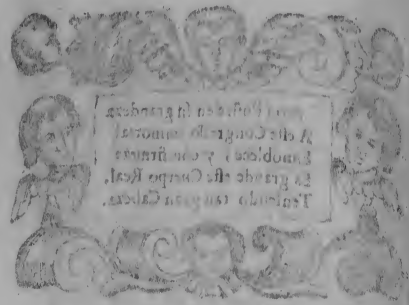 en ſu grandeza
A eſte Congreſſo immortal
Ennoblece, y con firmeza
Es grande eſte Cuerpo Real,
Teniendo tan gran Cabeza.